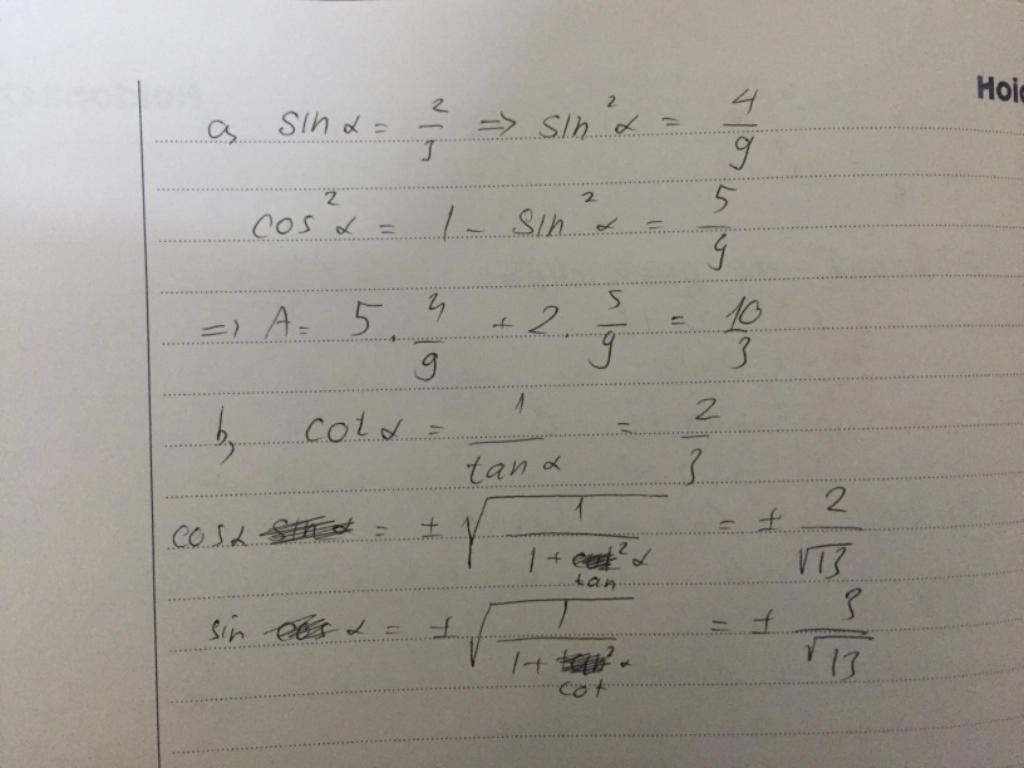 Hoi
a, sin α = 2/3 => sin² α = 4/9
cos² α = 1 - sin² α = 5/9
=> A = 5 . 4/9 + 2 . 5/9 = 10/3
b, cot α = 1/tan α = 2/3
cos α = ± √(1/(1 + tan² α)) = ± 2/√13
sin α = ± √(1/(1 + cot² α)) = ± 3/√13